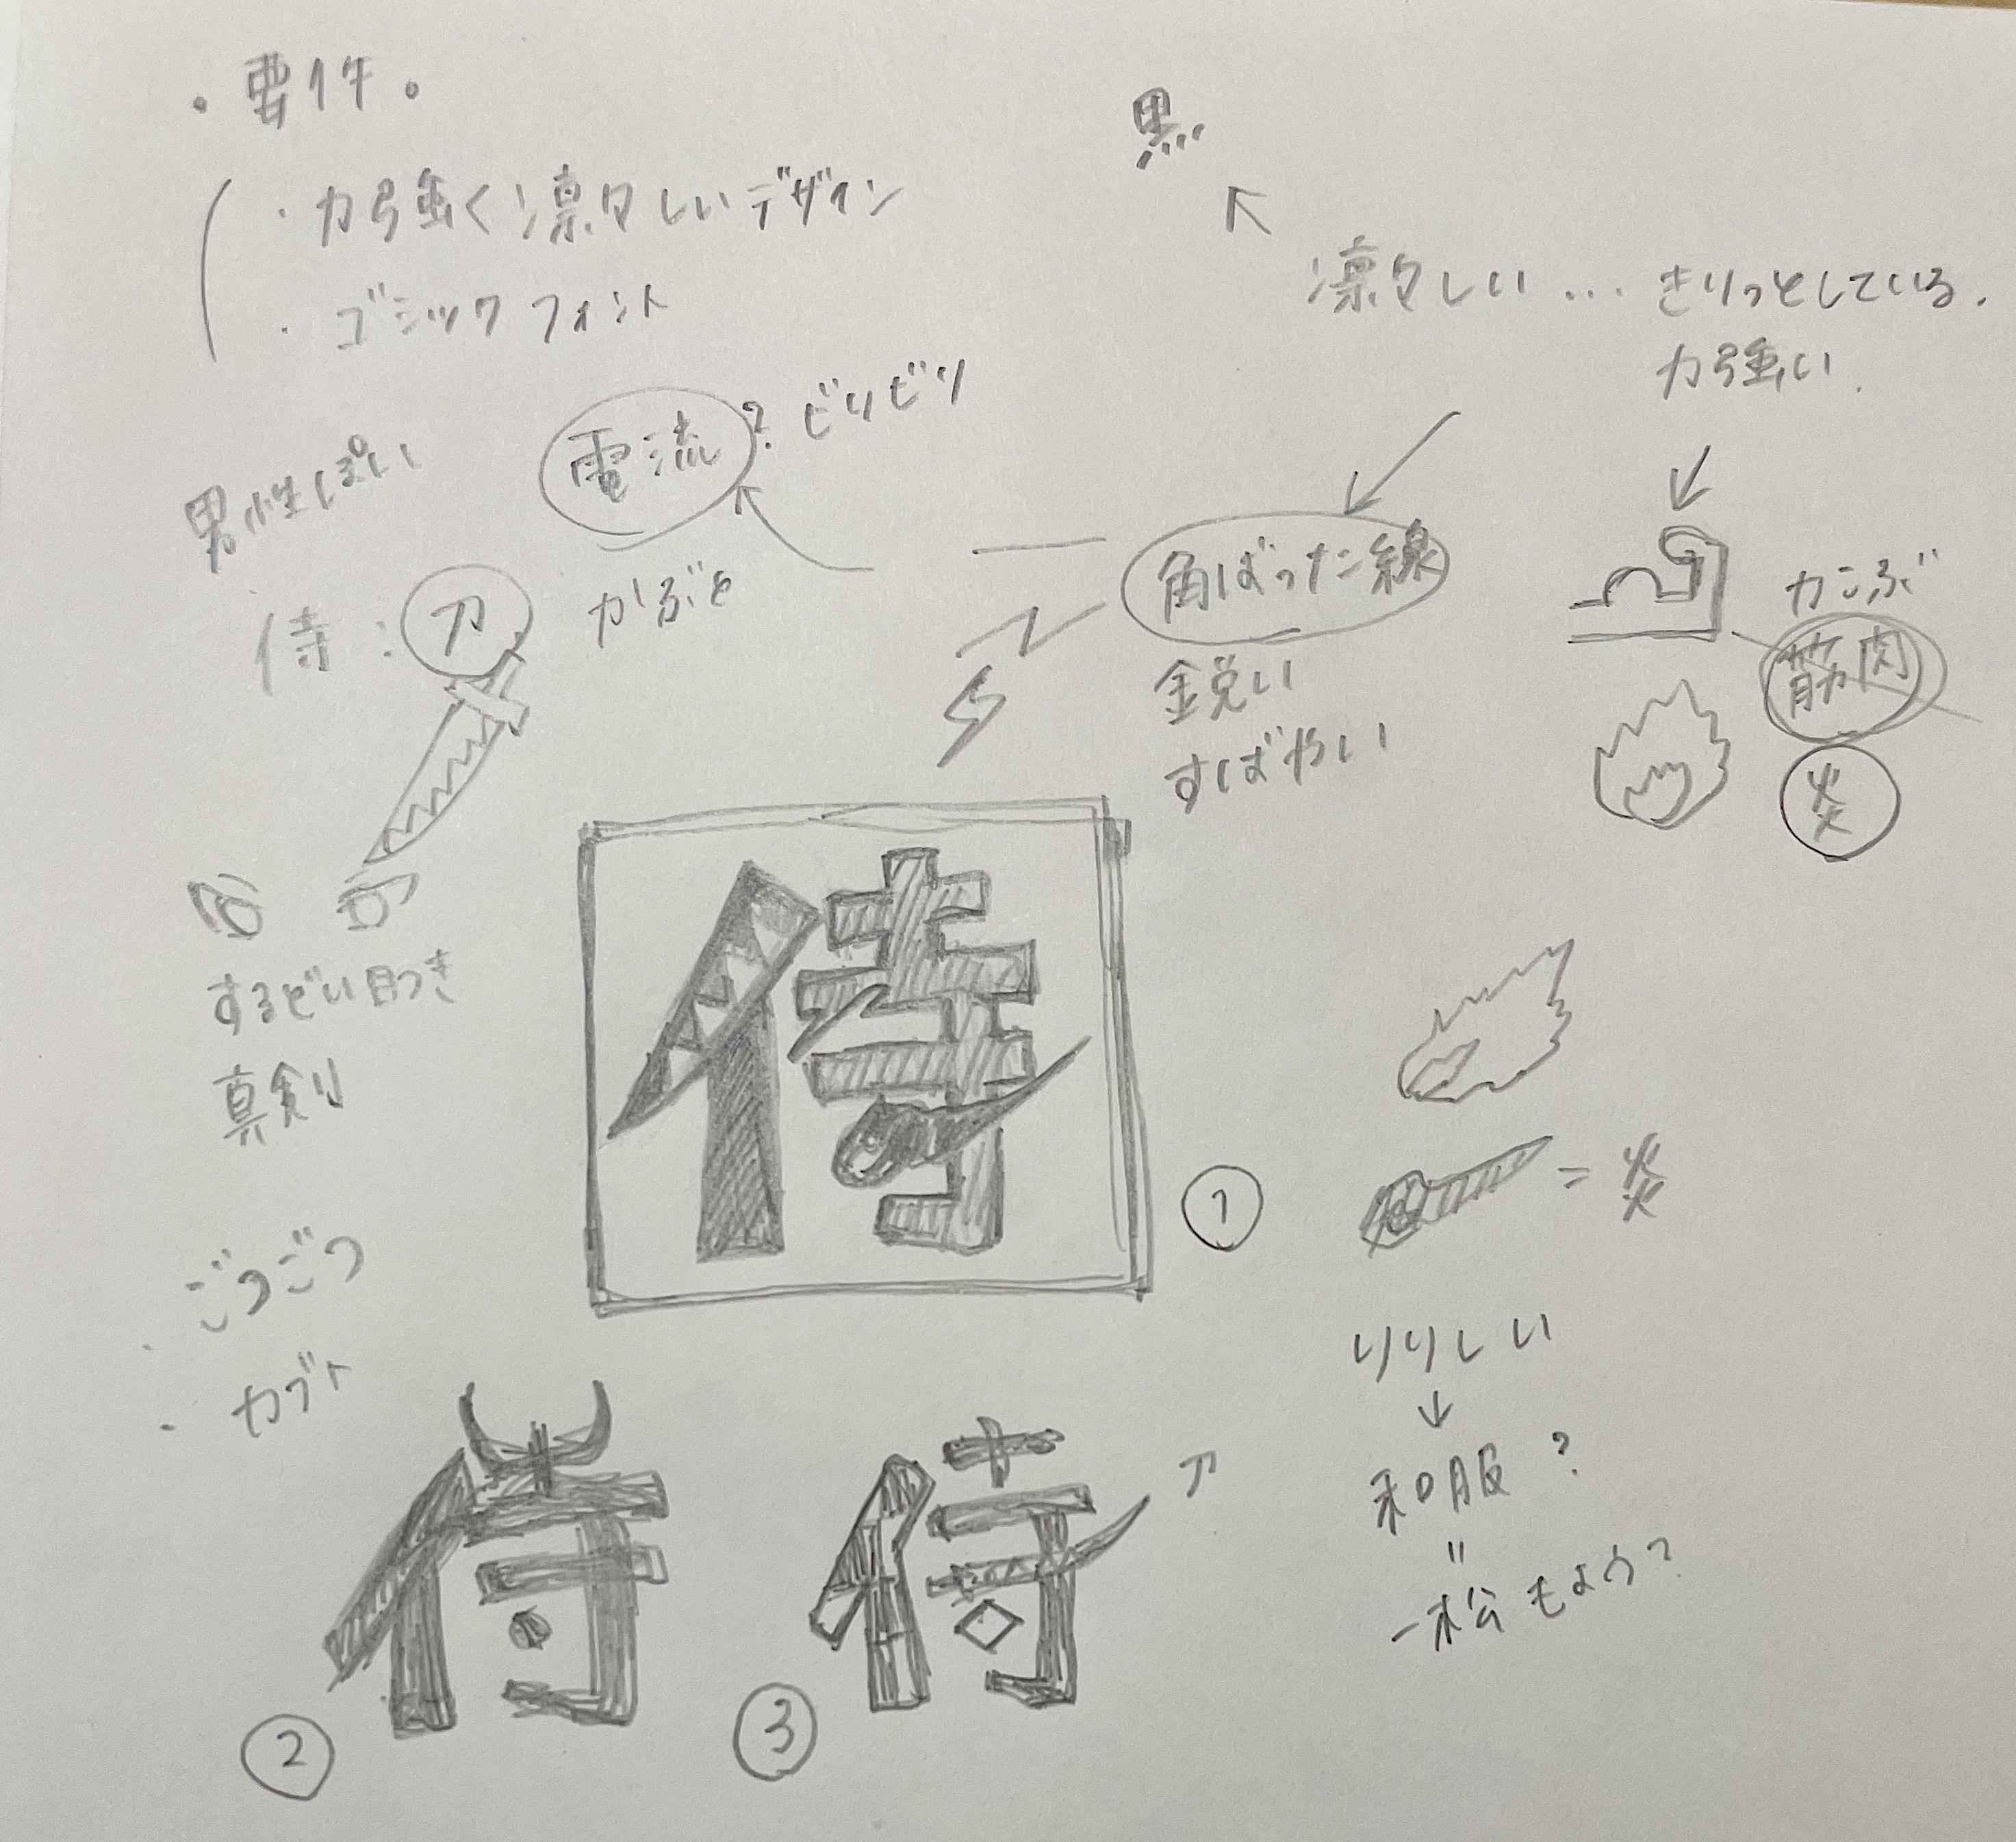 ・要件。
・力強く凛々しいデザイン
・ゴシックフォント
黒
凛々しい…きりっとしている。
力強い。
男性ぽい
電流?ビリビリ
侍:刀 かぶと
角ばった線
鋭い
すばやい
力こぶ
筋肉
炎
するどい目つき
真剣
侍
①
=炎
ごつごつ
・カブト
りりしい
↓
和服?
〃
一松もよう?
侍
②
侍
刀
③